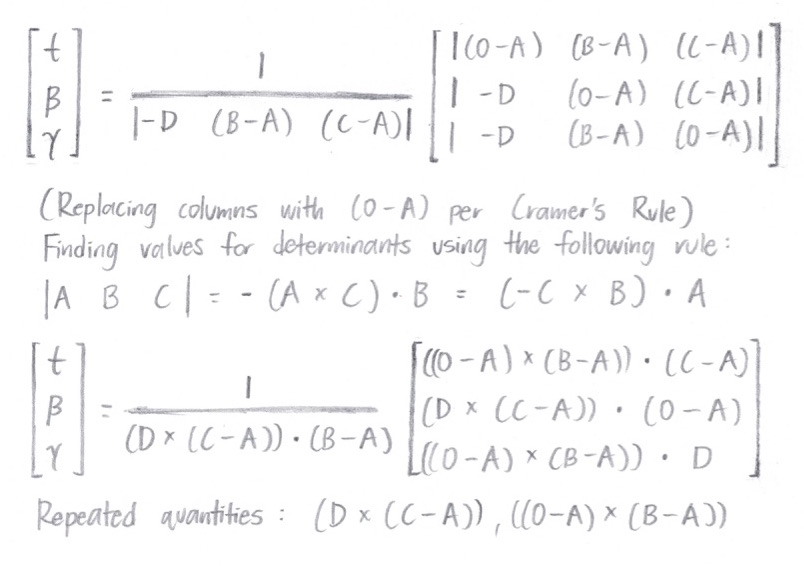 [t β γ] = 1 / |-D (B-A) (C-A)| [|(O-A) (B-A) (C-A)| |-D (O-A) (C-A)| |-D (B-A) (O-A)|]
(Replacing columns with (O-A) per Cramer's Rule)
Finding values for determinants using the following rule:
|A B C| = -(A × C) · B = (-C × B) · A
[t β γ] = 1 / (D × (C-A)) · (B-A) [((O-A) × (B-A)) · (C-A) (D × (C-A)) · (O-A) ((O-A) × (B-A)) · D]
Repeated quantities : (D × (C-A)), ((O-A) × (B-A))